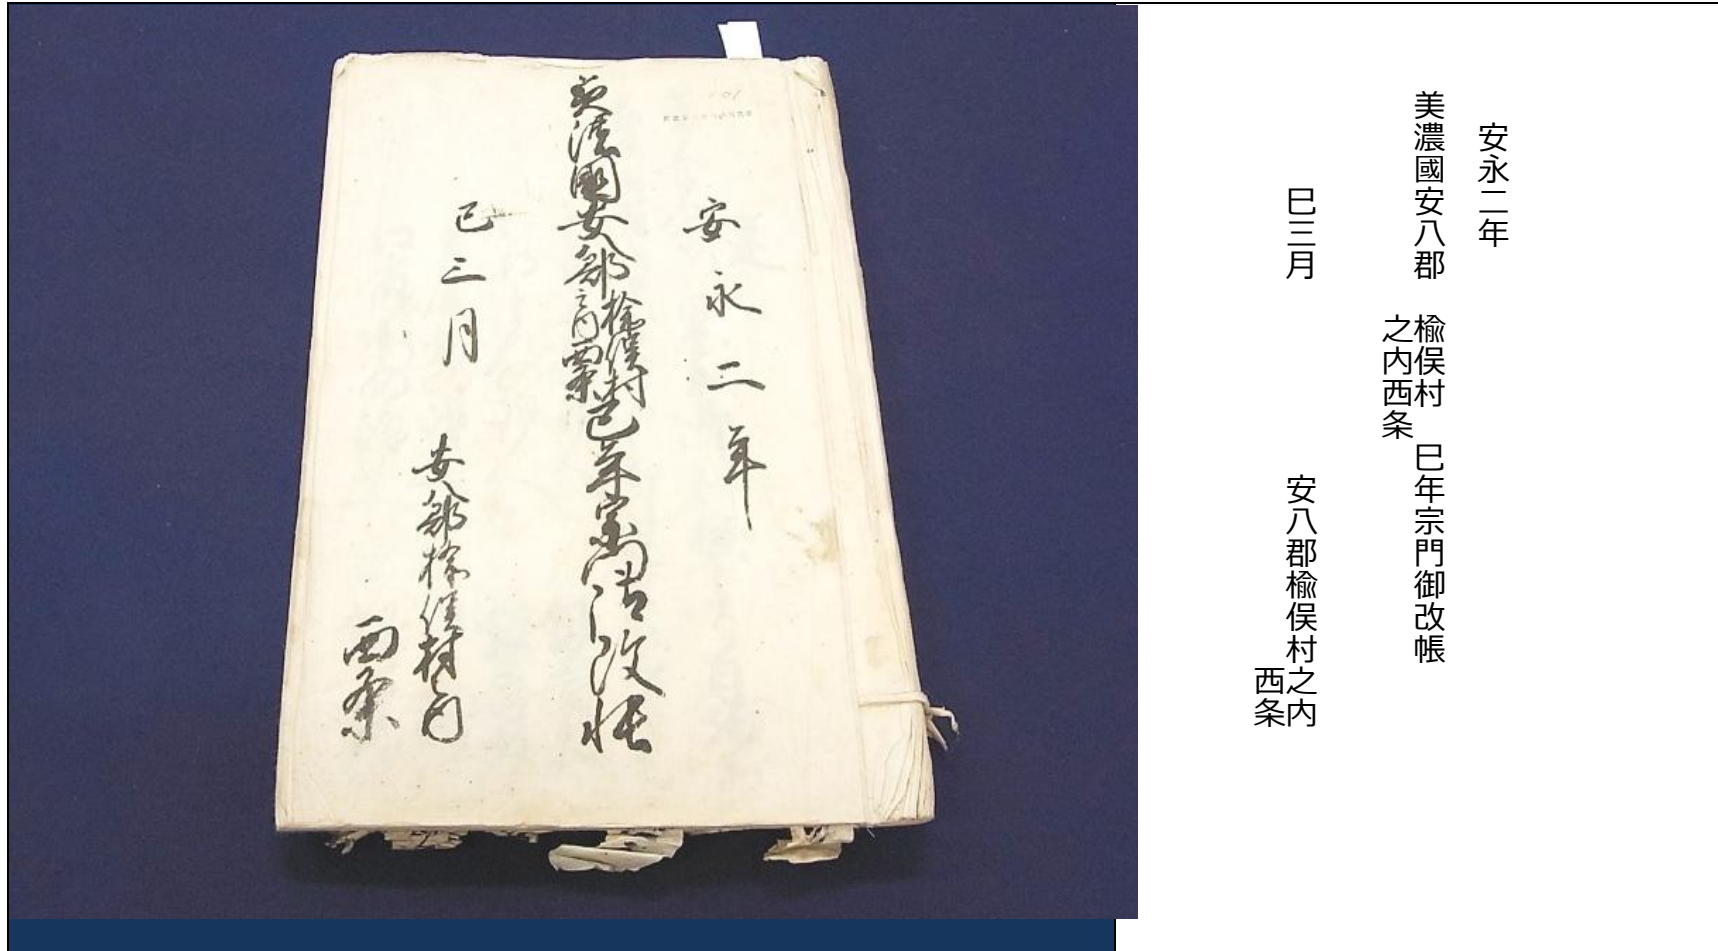 安永二年
美濃國安八郡楡俣村之内西条巳年宗門御改帳
巳三月
安八郡楡俣村之内
西条
安永二年
美濃國安八郡 楡俣村 巳年宗門御改帳
之内西条
巳三月 安八郡楡俣村之内
西条